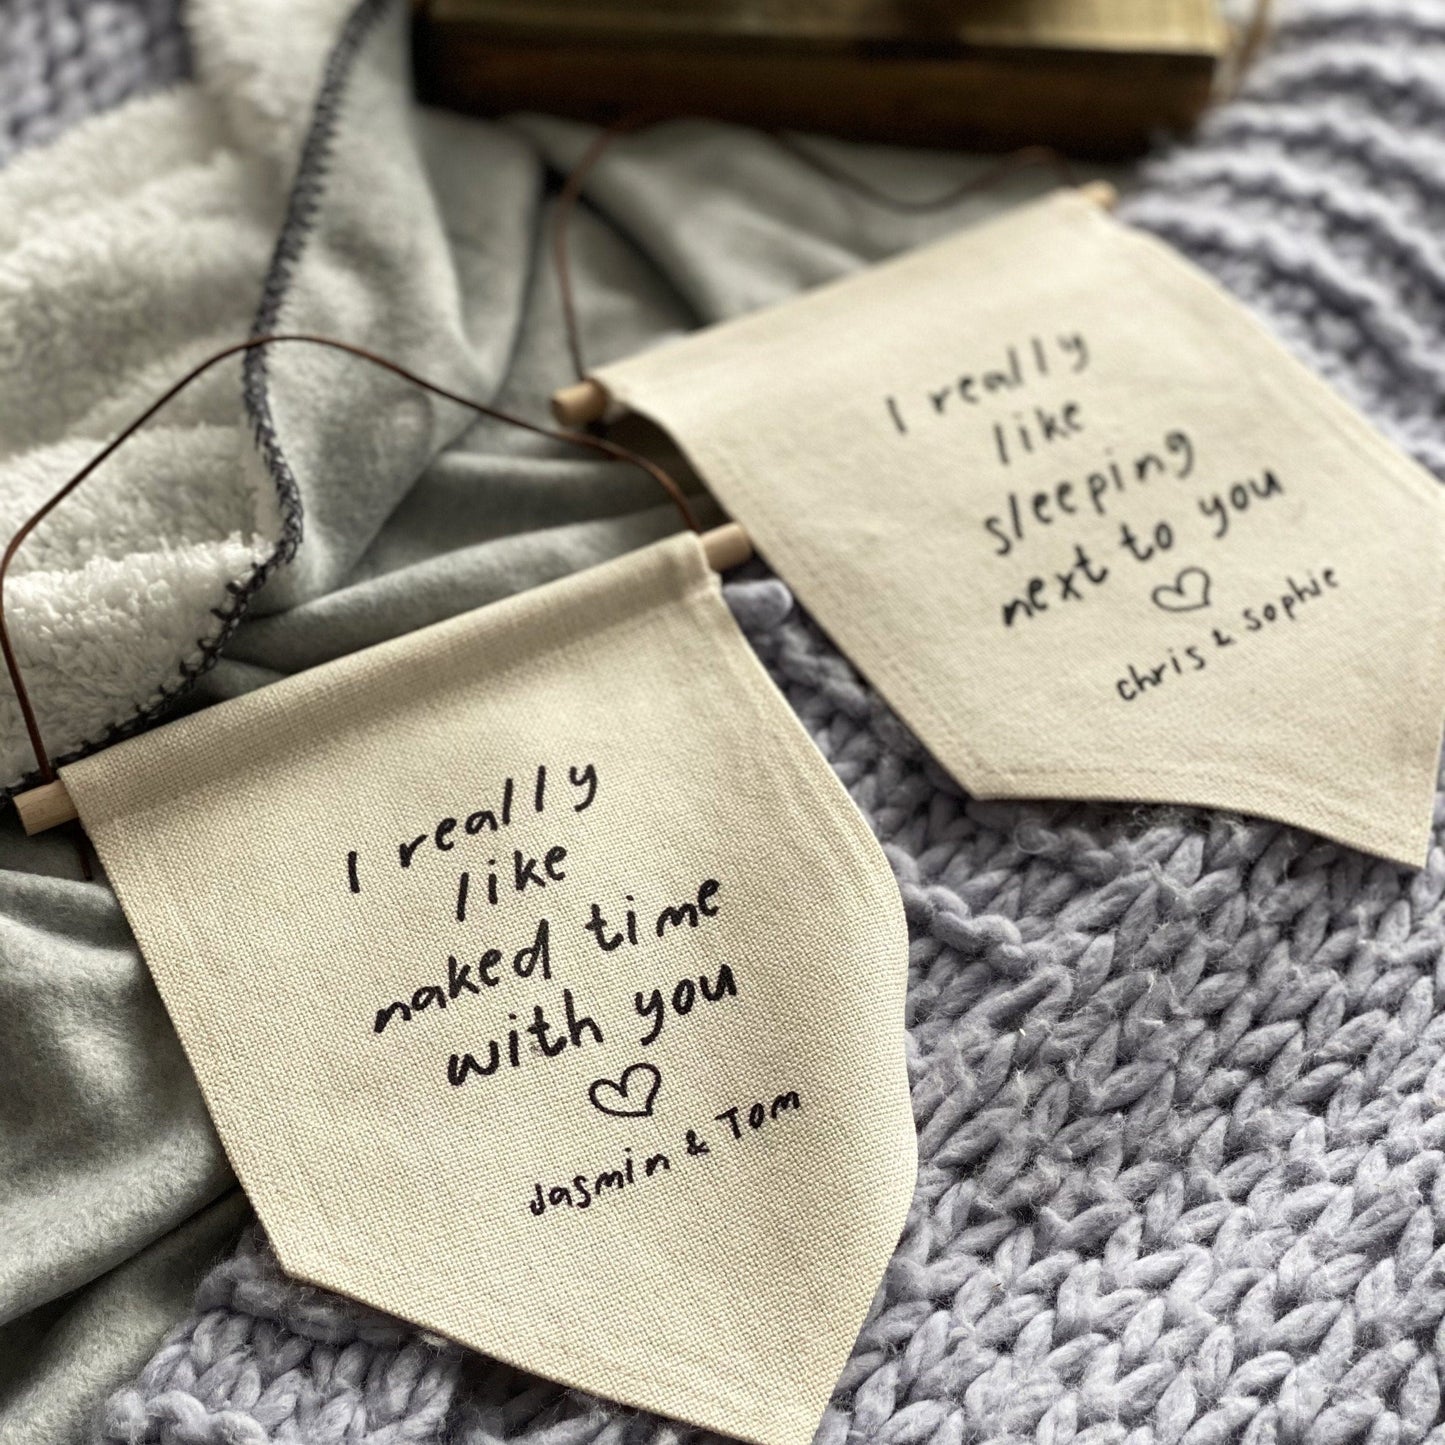 I really
like
naked time
with you
Jasmin & Tom
I really
like
sleeping
next to you
chris & sophie